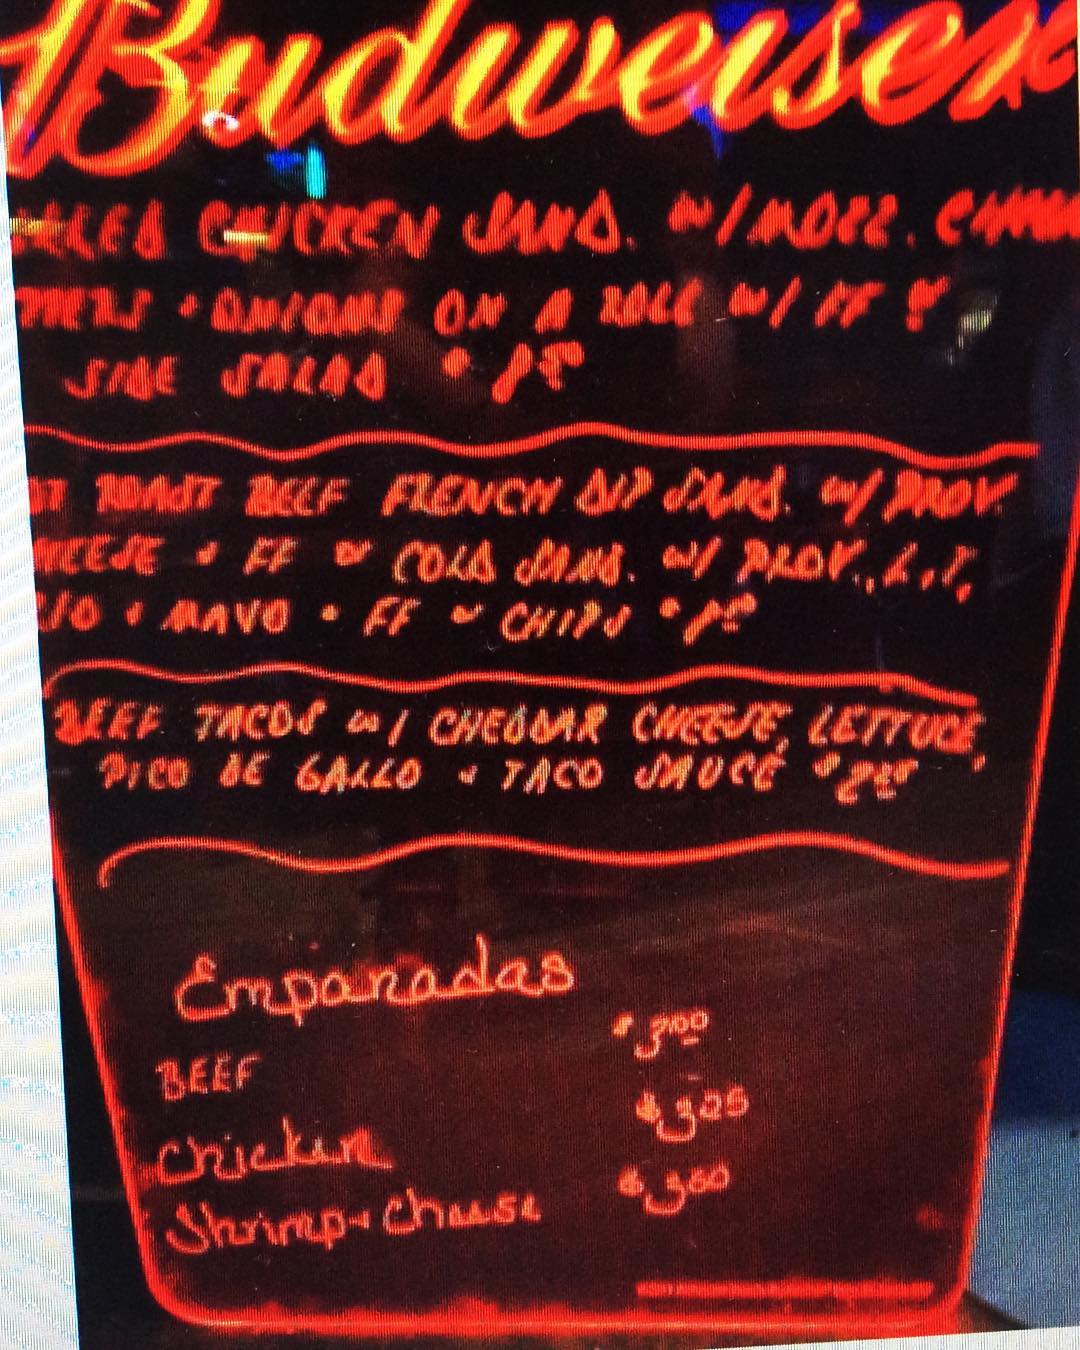 Budweiser
CHICKEN SAND. w/ MOZZ.
ONIONS ON A ROLL w/ FF
SIDE SALAD
ROAST BEEF FRENCH DIP SAND. w/ PROV.
FF COLD SAND. w/ PROV., L, T,
MAYO • FF CHIPS
BEEF TACOS w/ CHEDDAR CHEESE, LETTUCE,
PICO DE GALLO + TACO SAUCE
Empanadas
BEEF $3.00
Chicken $3.25
Shrimp + Cheese